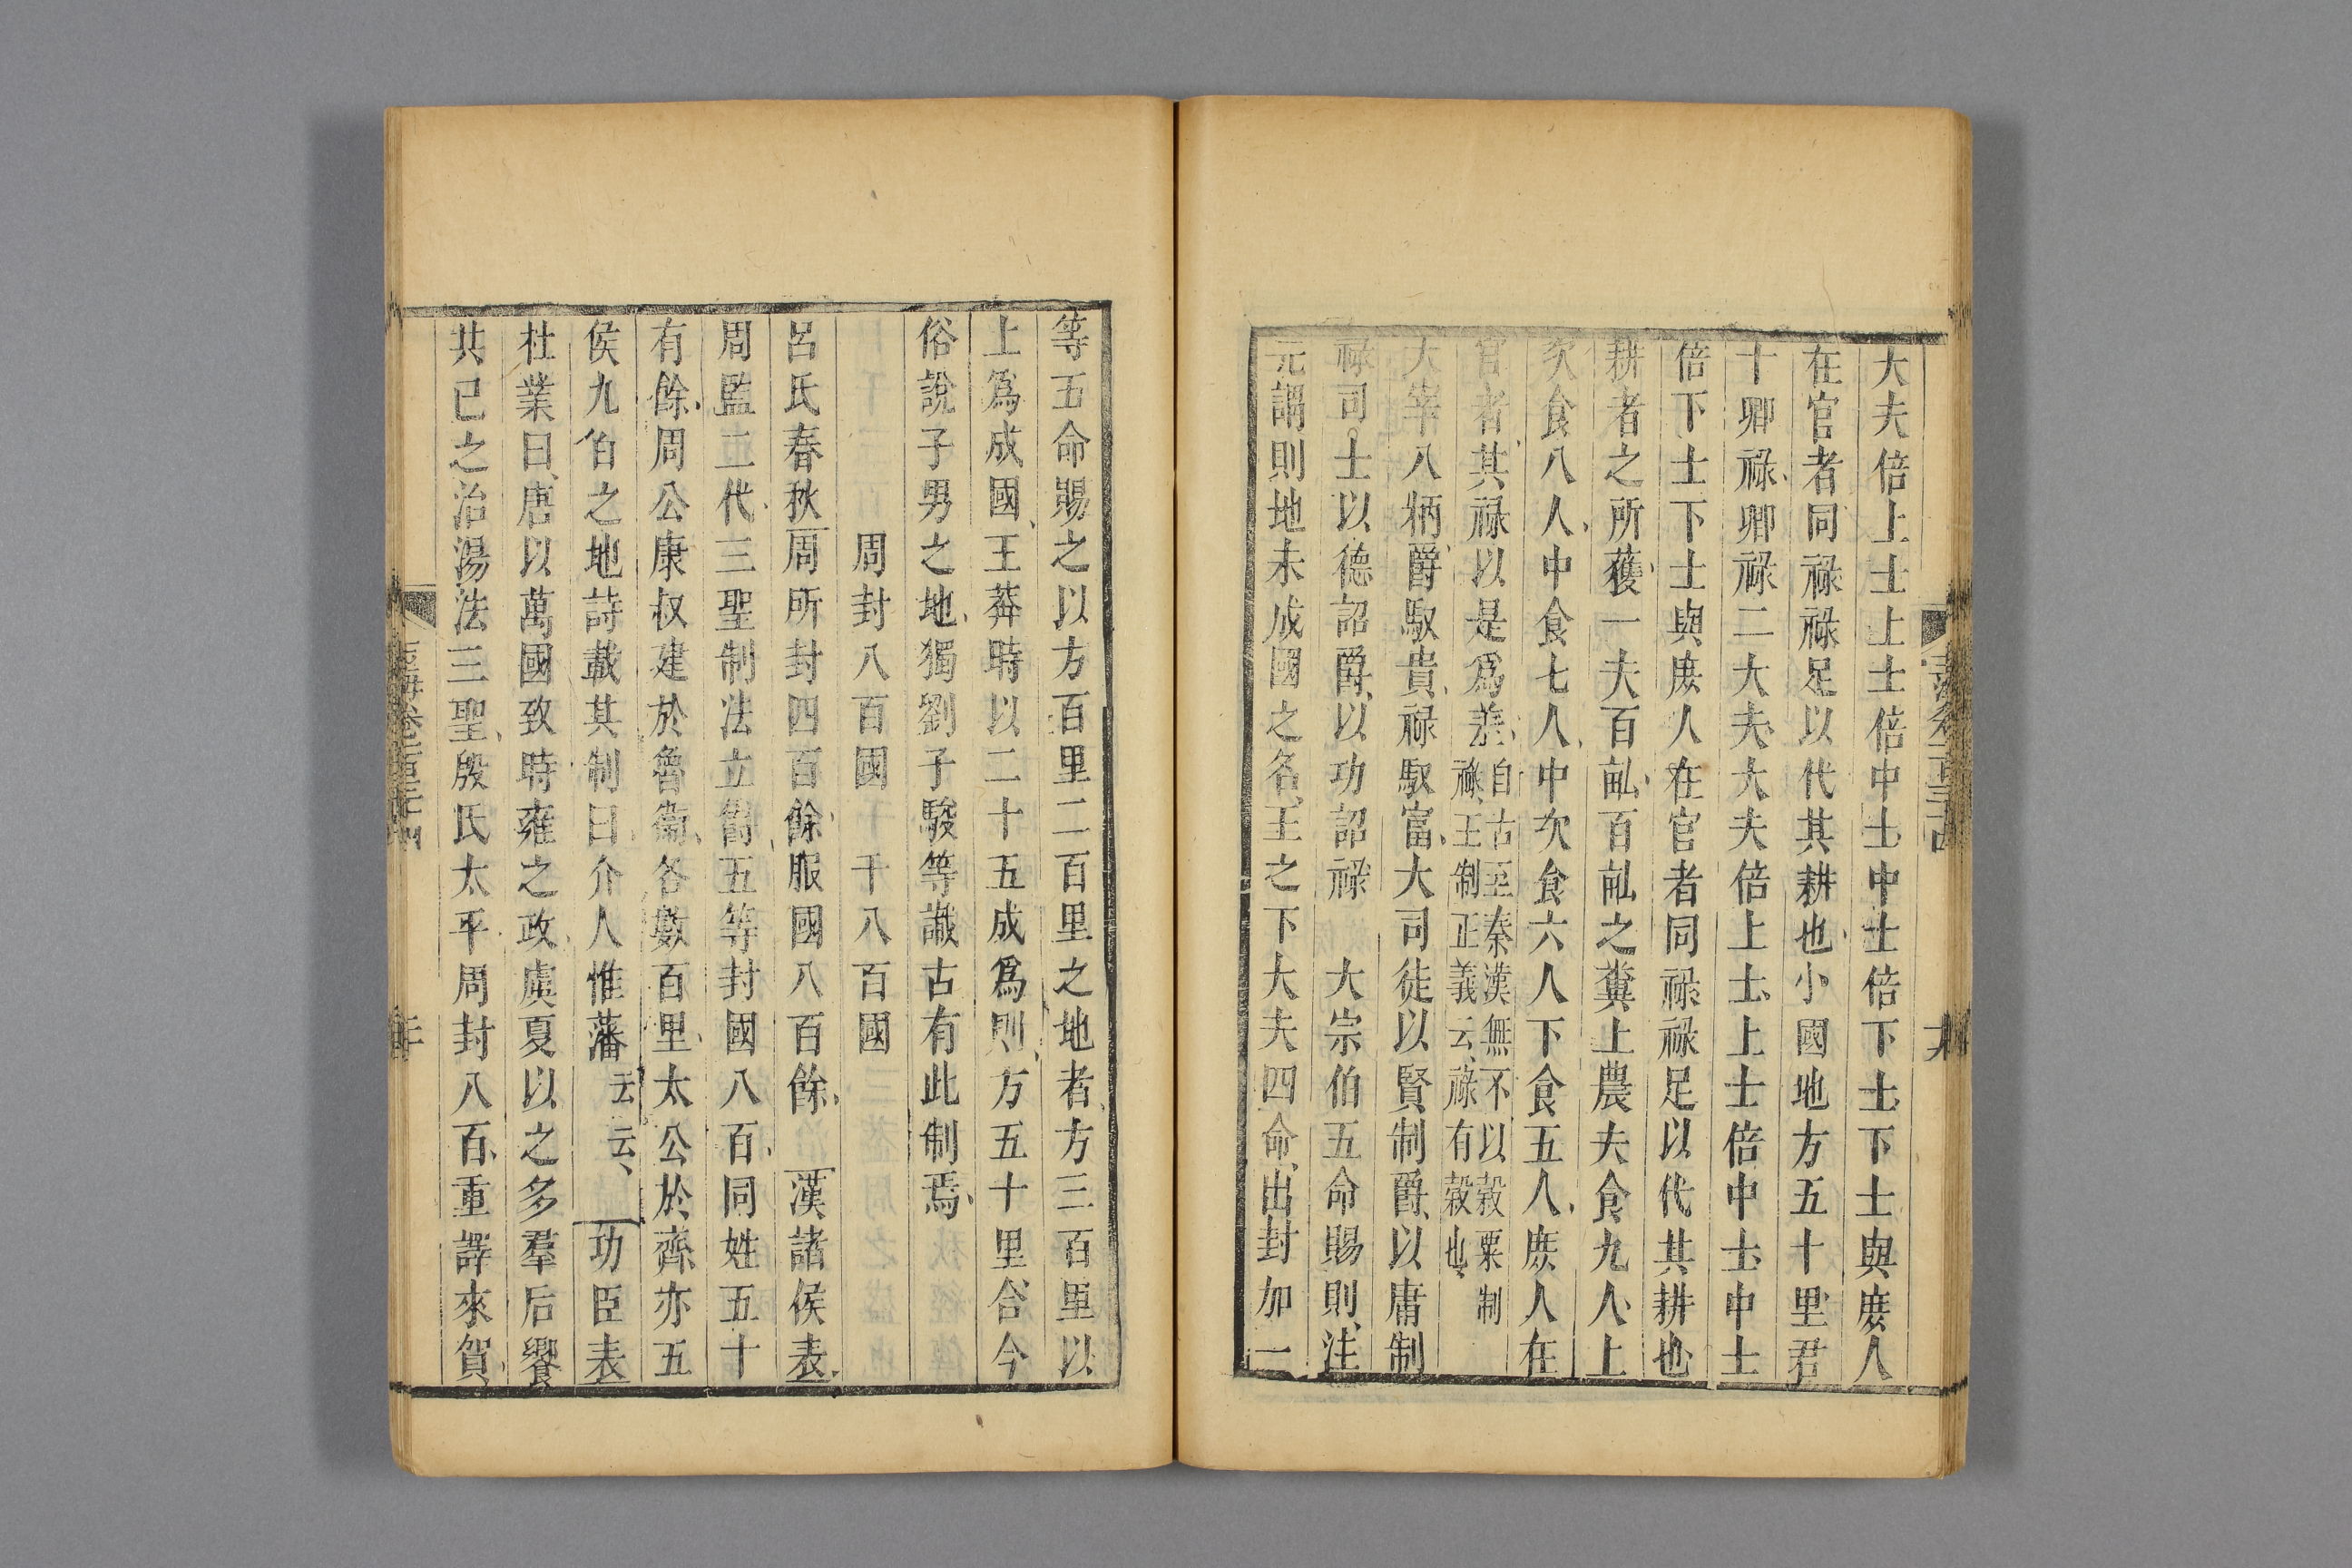 大夫倍上士上士倍中士中士倍下士下士與庶人
在官者同祿祿足以代其耕也小國地方五十里君
十卿祿卿祿二大夫大夫倍上士上士倍中士中士
倍下士下士與庶人在官者同祿祿足以代其耕也
耕者之所穫一夫百畝百畝之糞上農夫食九人上
次食八人中食七人中次食六人下食五人庶人在
官者其祿以是爲差自古至秦漢無不以穀粟制
祿王制正義云祿有穀也
大宰八柄爵馭貴祿馭富大司徒以賢制爵以庸制
祿司士以德詔爵以功詔祿 大宗伯五命賜則注
元謂則地未成國之名王之下大夫四命出封加一
等五命賜之以方百里二百里之地者方三百里以
上爲成國王莽時以二十五成爲則方五十里合今
俗說子男之地獨劉子駿等識古有此制焉
周封八百國 千八百國
呂氏春秋周所封四百餘服國八百餘 漢諸侯表
周監二代三聖制法立爵五等封國八百同姓五十
有餘周公康叔建於魯衞各數百里太公於齊亦五
侯九伯之地詩載其制曰介人惟藩云云 功臣表
杜業曰唐以萬國致時雍之政虞夏以之多羣后饗
共已之治湯法三聖殷氏太平周封八百重譯來賀